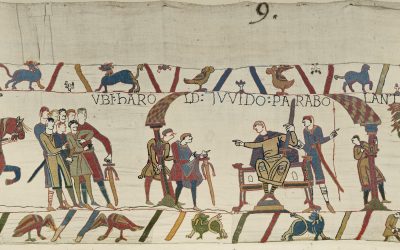 9.
VBI:hARO LD: ⁊VVIDO:PARABO LANT